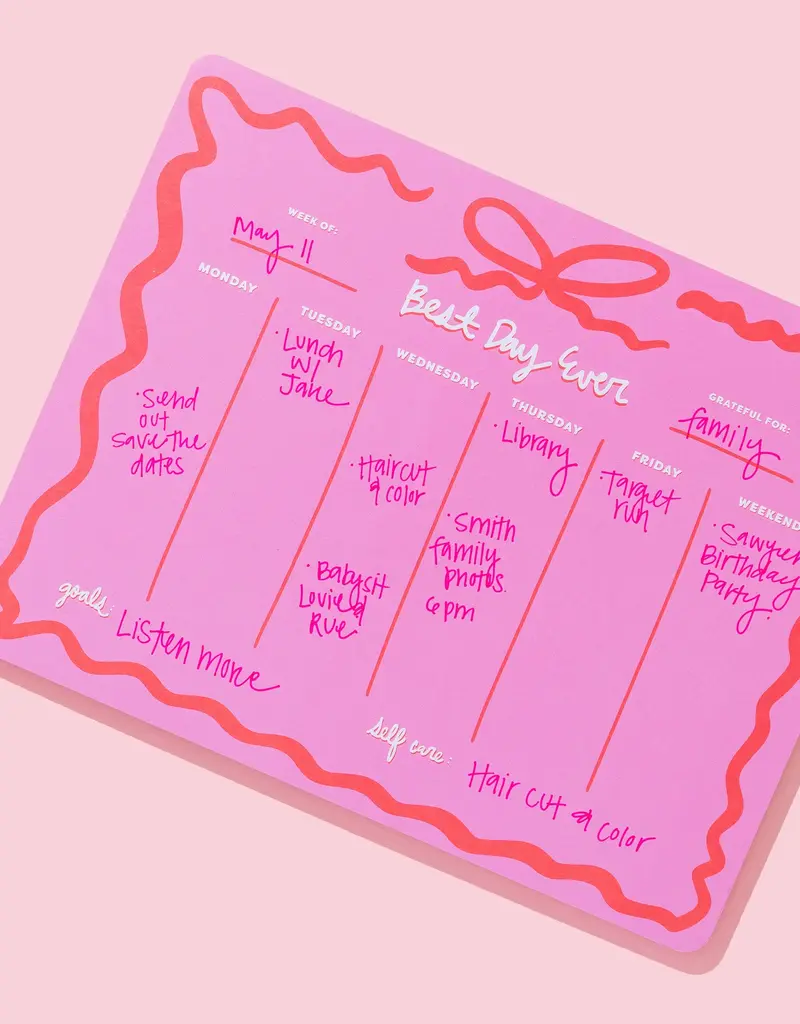 WEEK OF:
May 11
Best Day Ever
GRATEFUL FOR:
family
MONDAY
· Send
out
save the
dates
TUESDAY
· Lunch
w/
Jane
WEDNESDAY
· Haircut
& color
· Babysit
Lovie &
Rue
THURSDAY
· Library
· Smith
family
photos.
6pm
FRIDAY
· Target
run
WEEKEND
· Sawyer
Birthday
Party!
goals:
Listen more
self care:
Hair cut & color